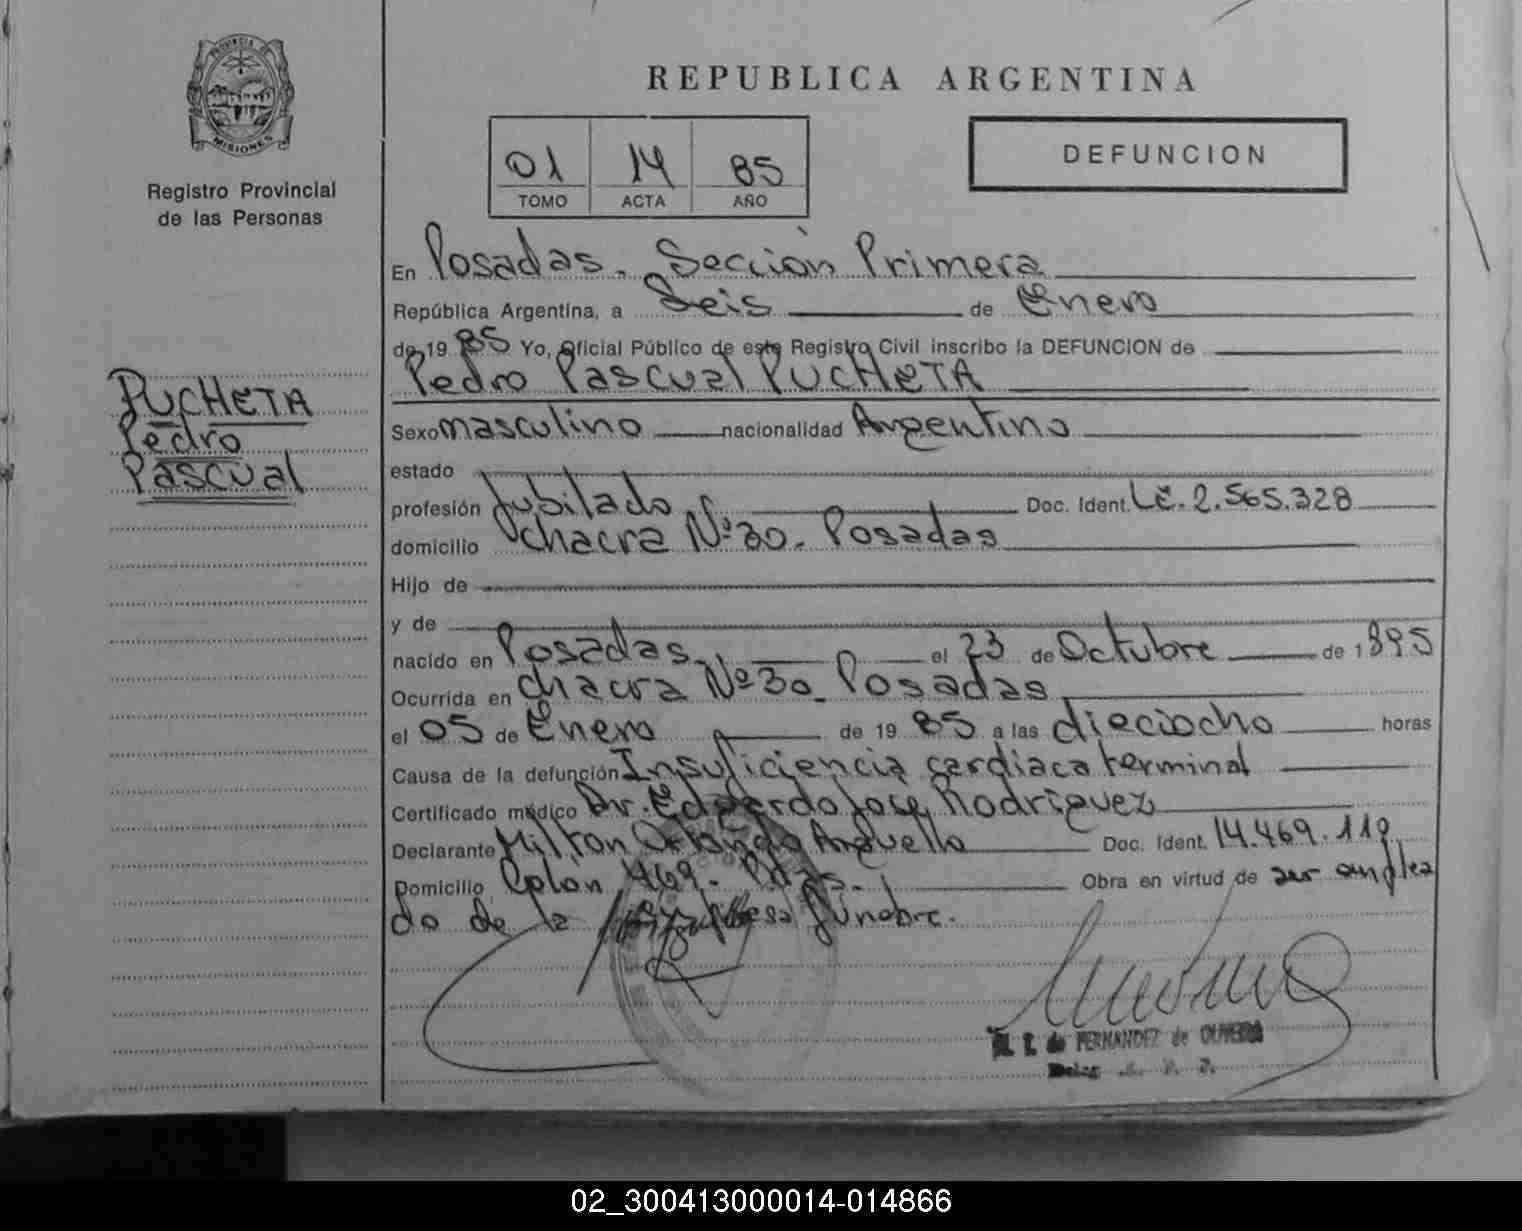 PROVINCIA DE
MISIONES
Registro Provincial
de las Personas
PUCHETA
Pedro
Pascual
REPUBLICA ARGENTINA
01 14 85
TOMO ACTA AÑO
DEFUNCION
En Posadas. Sección Primera
República Argentina, a Seis de Enero
de 19 85 Yo, Oficial Público de este Registro Civil inscribo la DEFUNCION de
Pedro Pascual PUCHETA
Sexo masculino nacionalidad Argentino
estado
profesión Jubilado Doc. Ident. L.E. 2.565.328
domicilio chacra Nº 30. Posadas
Hijo de
y de
nacido en Posadas el 23 de Octubre de 1895
Ocurrida en chacra Nº 30. Posadas
el 05 de Enero de 19 85 a las dieciocho horas
Causa de la defunción Insuficiencia cardiaca terminal
Certificado médico Dr. Edgardo José Rodriguez
Declarante Milton Orlando Arguello Doc. Ident. 14.469.119
Domicilio Colon 469. Pdas. Obra en virtud de ser emplea
do de la Empresa fúnebre.
de FERNANDEZ de OLIVEIRA
Deleg
02_300413000014-014866